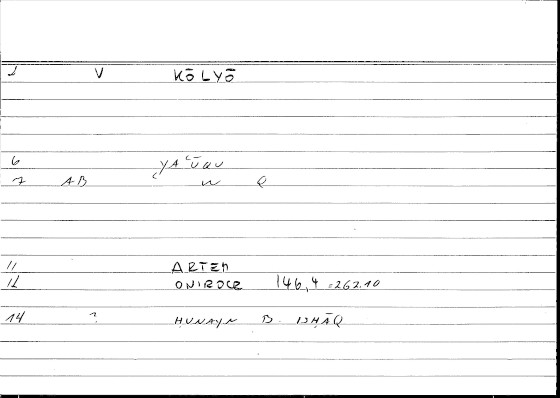 1 V KŌLYŌ
6 YA'ŪQU
7 AB W Q
11 ARTEM
12 ONIROCR 146,4 = 262.10
14 ? HUNAYN B. ISḤĀQ